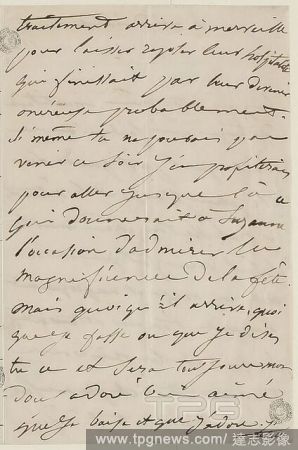 traitement arrive à merveille
pour laisser reposer leur hospitalité
qui finissait par leur devenir
onéreuse probablement.
Si même tu ne pouvais pas
venir ce soir j'en profiterais
pour aller jusque là ce
qui donnerait à Suzanne
l'occasion d'admirer les
magnificences de la fête.
mais quoiqu'il arrive, quoi
que je fasse ou que je dise
tu es et seras toujours mon
doux adoré bien aimé
que je baise et que j'adore.
TPG
www.tpgnews.com/ 達志影像